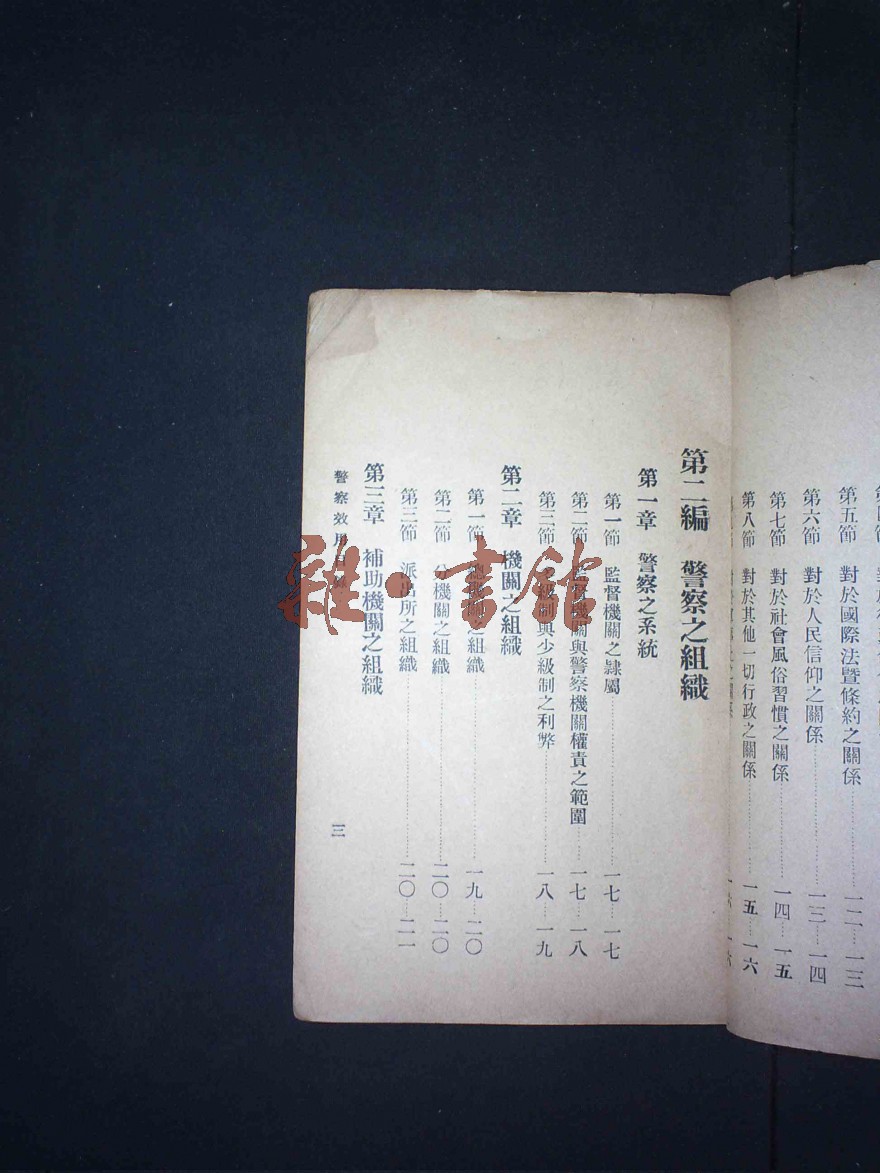 第五節 對於國際法暨條約之關係……一二……一三
第六節 對於人民信仰之關係……一三……一四
第七節 對於社會風俗習慣之關係……一四……一五
第八節 對於其他一切行政之關係……一五……一六
第二編 警察之組織
第一章 警察之系統
第一節 監督機關之隷屬……一七……一七
第二節 監督機關與警察機關權責之範圍……一七……一八
第三節 級制與少級制之利弊……一八……一九
第二章 機關之組織
第一節 總機關之組織……一九……二〇
第二節 分機關之組織……二〇……二〇
第三節 派出所之組織……二〇……二一
第三章 補助機關之組織
警察效用目錄
三
雜·書館